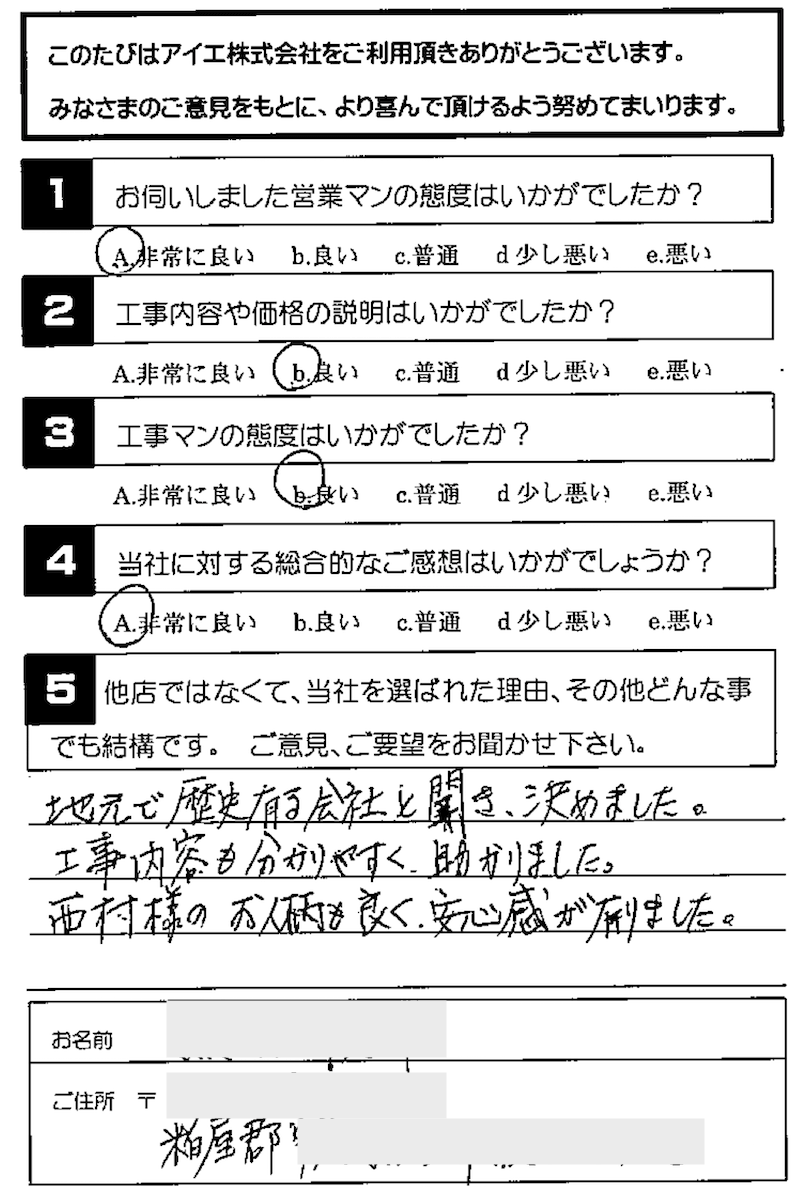 このたびはアイエ株式会社をご利用頂きありがとうございます。
みなさまのご意見をもとに、より喜んで頂けるよう努めてまいります。
1 お伺いしました営業マンの態度はいかがでしたか？
A.非常に良い b.良い c.普通 d少し悪い e.悪い
2 工事内容や価格の説明はいかがでしたか？
A.非常に良い b.良い c.普通 d少し悪い e.悪い
3 工事マンの態度はいかがでしたか？
A.非常に良い b.良い c.普通 d少し悪い e.悪い
4 当社に対する総合的なご感想はいかがでしょうか？
A.非常に良い b.良い c.普通 d少し悪い e.悪い
5 他店ではなくて、当社を選ばれた理由、その他どんな事
でも結構です。 ご意見、ご要望をお聞かせ下さい。
地元で歴史有る会社と聞き、決めました。
工事内容も分かりやすく、助かりました。
西村様の お人柄も良く、安心感が有りました。
お名前
ご住所 〒
粕屋郡